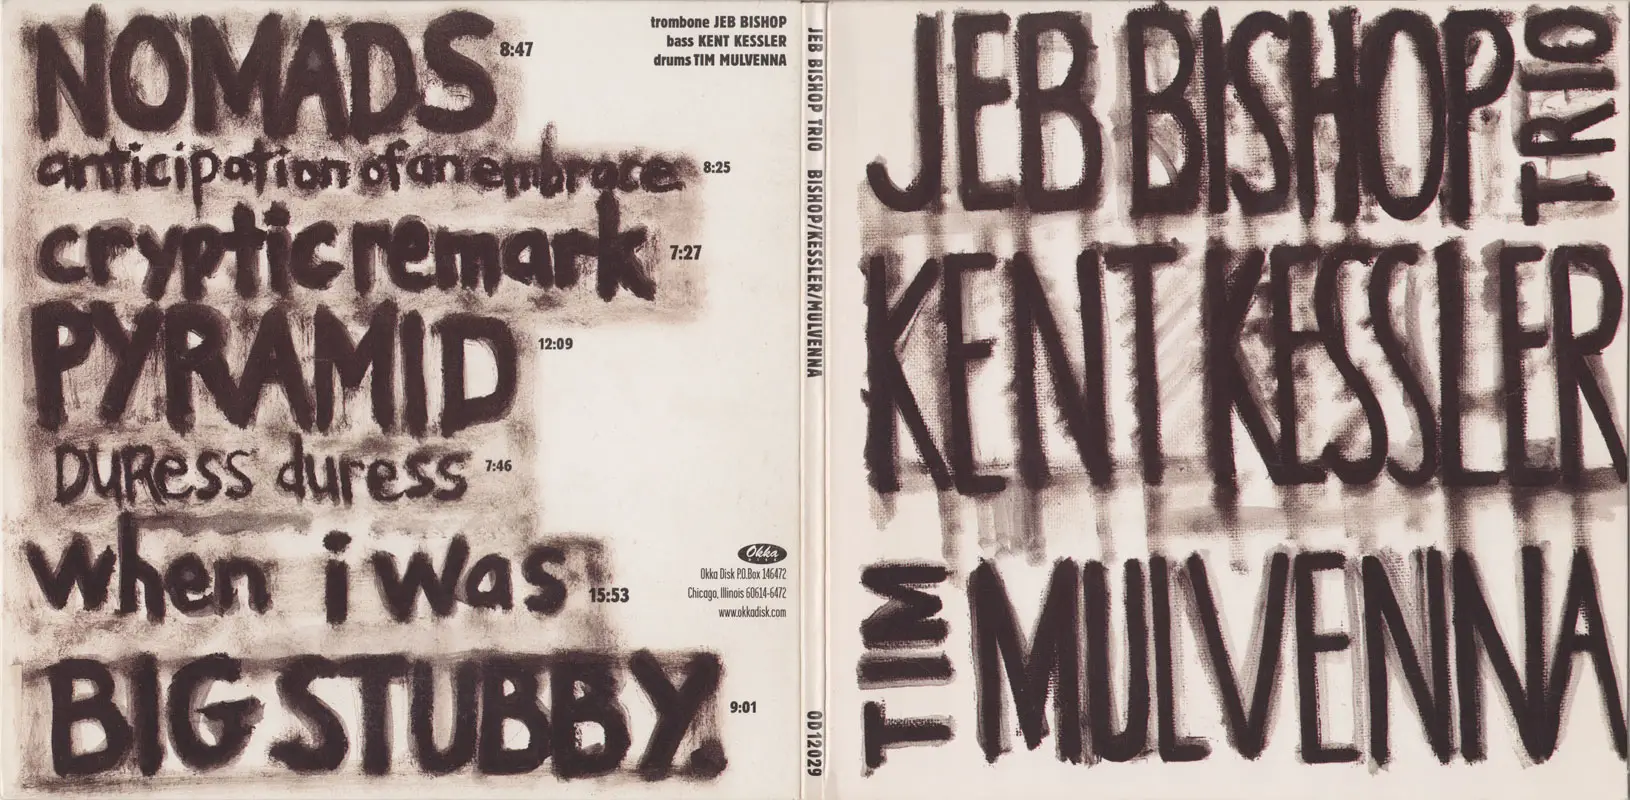 NOMADS 8:47
anticipation of an embrace 8:25
cryptic remark 7:27
PYRAMID 12:09
DURess duress 7:46
when i was 15:53
BIG STUBBY. 9:01
trombone JEB BISHOP
bass KENT KESSLER
drums TIM MULVENNA
Okka
Okka Disk P.O.Box 146472
Chicago, Illinois 60614-6472
www.okkadisk.com
JEB BISHOP TRIO BISHOP/KESSLER/MULVENNA OD12029
JEB BISHOP TRIO
KENT KESSLER
TIM MULVENNA